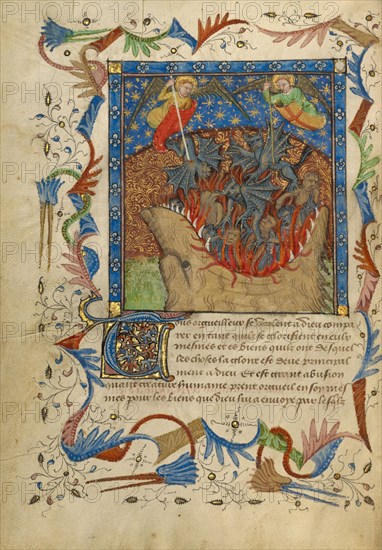 Tous orgueilleux se veulent a dieu compa
rer en tant quilz se glorifient en eulx
mesmes et es biens quilz ont desquel
les choses la gloire est deue principal
ment a dieu Et est grant abusion
quant creature humaine prent orgueil en soy mes
mes pour les biens que dieu lui a envoyé
PHOTO
PHOTO
PHOTO